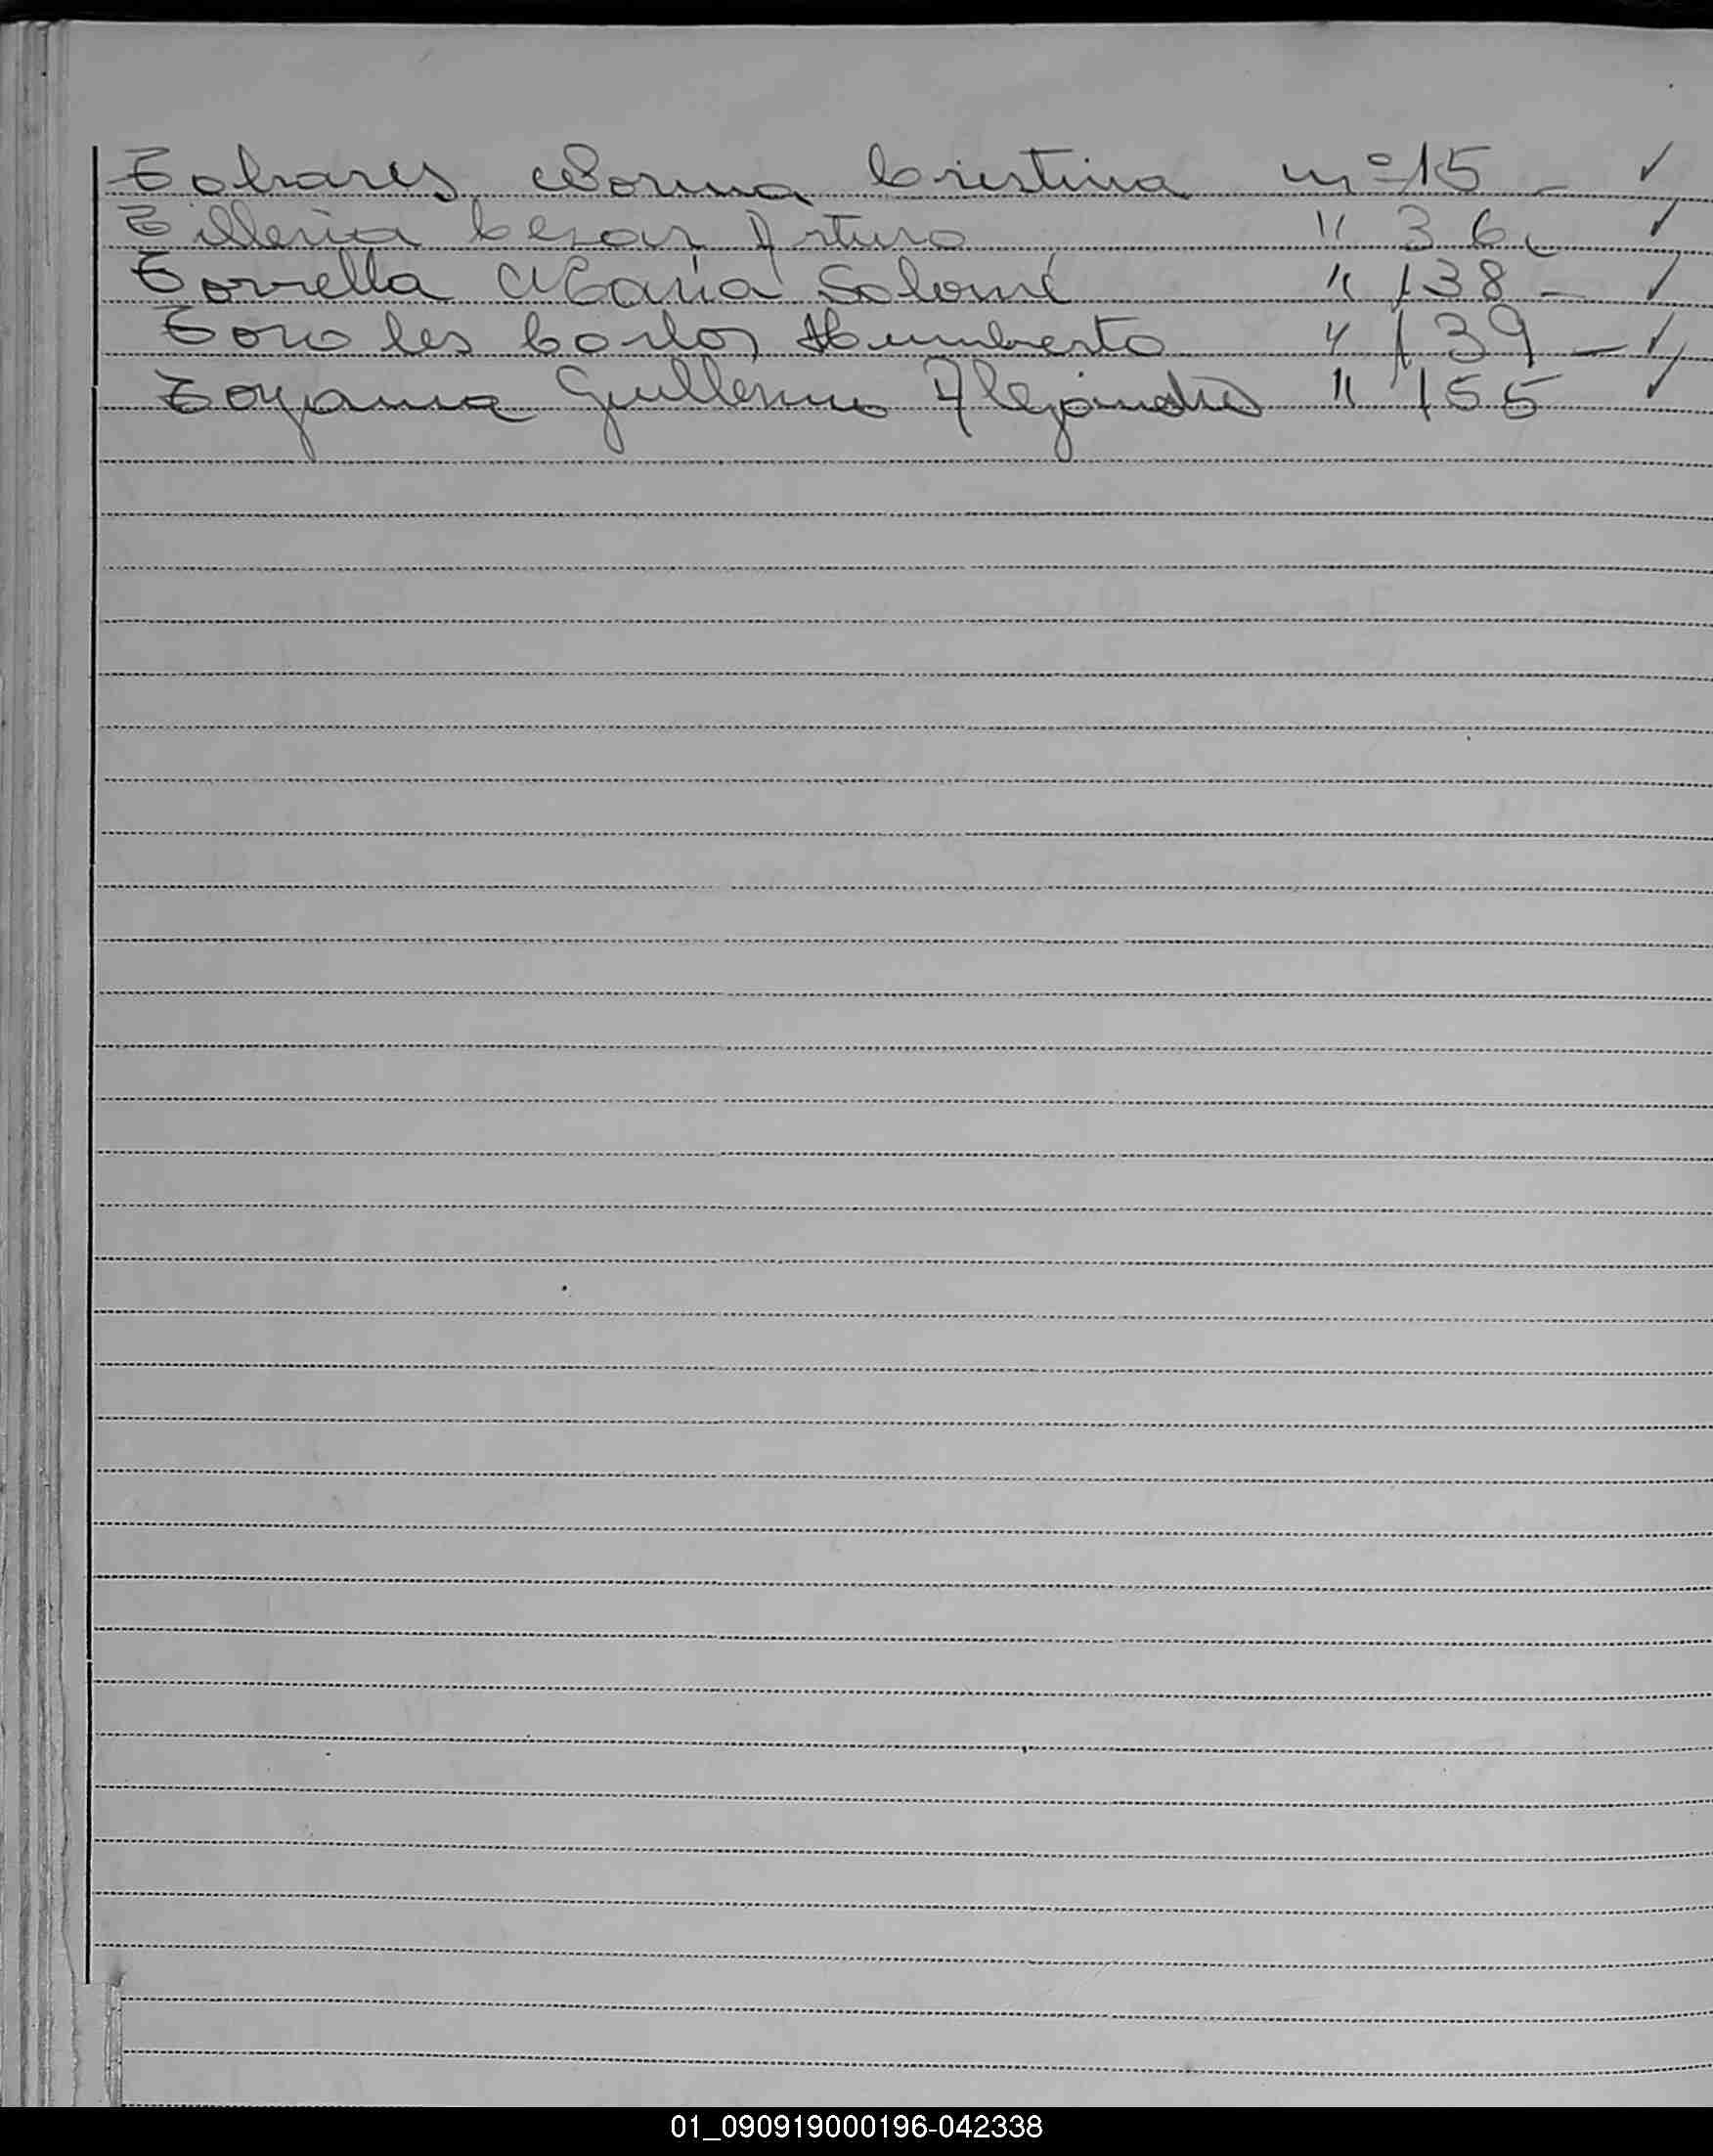 Tabares Norma Cristina nº 15 -
Tilleria Cesar Arturo " 36
Torrella Maria Salomé " 138 -
Carlos Humberto " 139 -
Toyama Guillermo Alejandro " 155
01_090919000196-042338